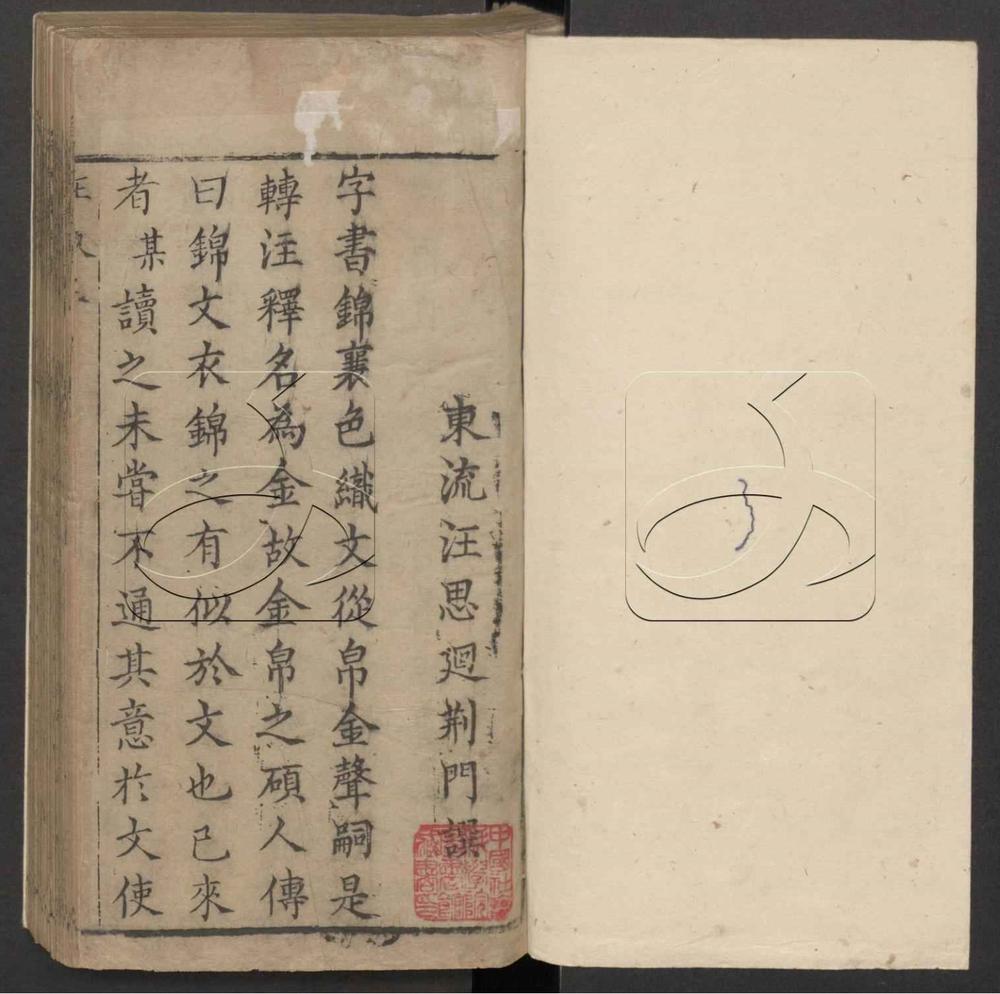 東流汪思廻荆門譔
字書錦襄色織文從帛金聲嗣是
轉注釋名為金故金帛之碩人傳
曰錦文衣錦之有似於文也已來
者某讀之未嘗不通其意於文使